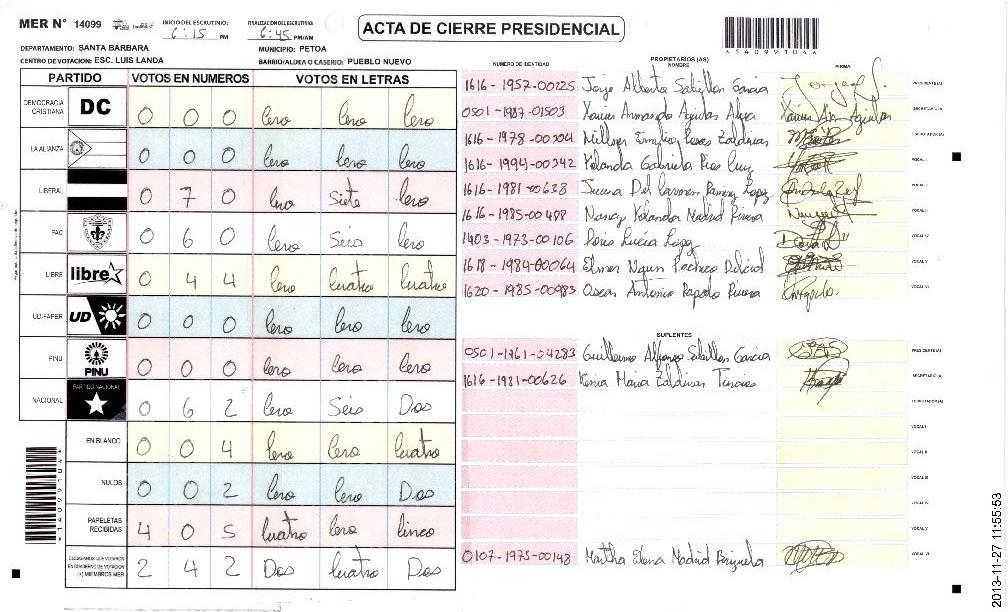 MER N° 14099
INICIO DEL ESCRUTINIO: 6:15 PM
FINALIZACION DEL ESCRUTINIO: 6:45 PM/AM
ACTA DE CIERRE PRESIDENCIAL
140991044
DEPARTAMENTO: SANTA BARBARA
MUNICIPIO: PETOA
CENTRO DE VOTACION: ESC. LUIS LANDA
BARRIO/ALDEA O CASERIO: PUEBLO NUEVO
PARTIDO VOTOS EN NUMEROS VOTOS EN LETRAS
DEMOCRACIA CRISTIANA DC 0 0 0 Cero Cero Cero
LA ALIANZA 0 0 0 Cero Cero Cero
LIBERAL 0 7 0 Cero Siete Cero
PAC 0 6 0 Cero Séis Cero
LIBRE libre 0 4 4 Cero Cuatro Cuatro
UD-FAPER UD 0 0 0 Cero Cero Cero
PINU PINU 0 0 0 Cero Cero Cero
NACIONAL PARTIDO NACIONAL 0 6 2 Cero Séis Dos
EN BLANCO 0 0 4 Cero Cero Cuatro
NULOS 0 0 2 Cero Cero Dos
PAPELETAS RECIBIDAS 4 0 5 Cuatro Cero Cinco
CIUDADANOS QUE VOTARON EN CUADERNO DE VOTACION (+) MIEMBROS MER 2 4 2 Dos Cuatro Dos
PROPIETARIOS (AS)
NUMERO DE IDENTIDAD NOMBRE FIRMA
1616-1957-00225 Jorge Alberto Sabillon Garcia PRESIDENTE(A)
0501-1987-01503 Xavier Armando Aguilar SECRETARIO(A)
1616-1978-00304 Zaldivar ESCRUTADOR(A)
1616-1994-00342 Yolanda Gabriela VOCAL I
1616-1981-00638 Del Carmen Lopez VOCAL II
1616-1985-00488 Nancy Yolanda Madrid Rivera VOCAL III
1403-1973-00106 Doris Lucia Lopez VOCAL IV
1618-1984-00064 Elmer Pacheco VOCAL V
1620-1985-00983 Oscar Antonio Rivera VOCAL VI
SUPLENTES
0501-1961-04283 Guillermo Alfonso Sabillon Garcia PRESIDENTE(A)
1616-1981-00626 Kenia Maria Zaldivar SECRETARIO(A)
ESCRUTADOR(A)
VOCAL I
VOCAL II
VOCAL III
VOCAL IV
VOCAL V
0107-1975-00148 Martha Elena Madrid VOCAL VI
2013-11-27 11:55:53